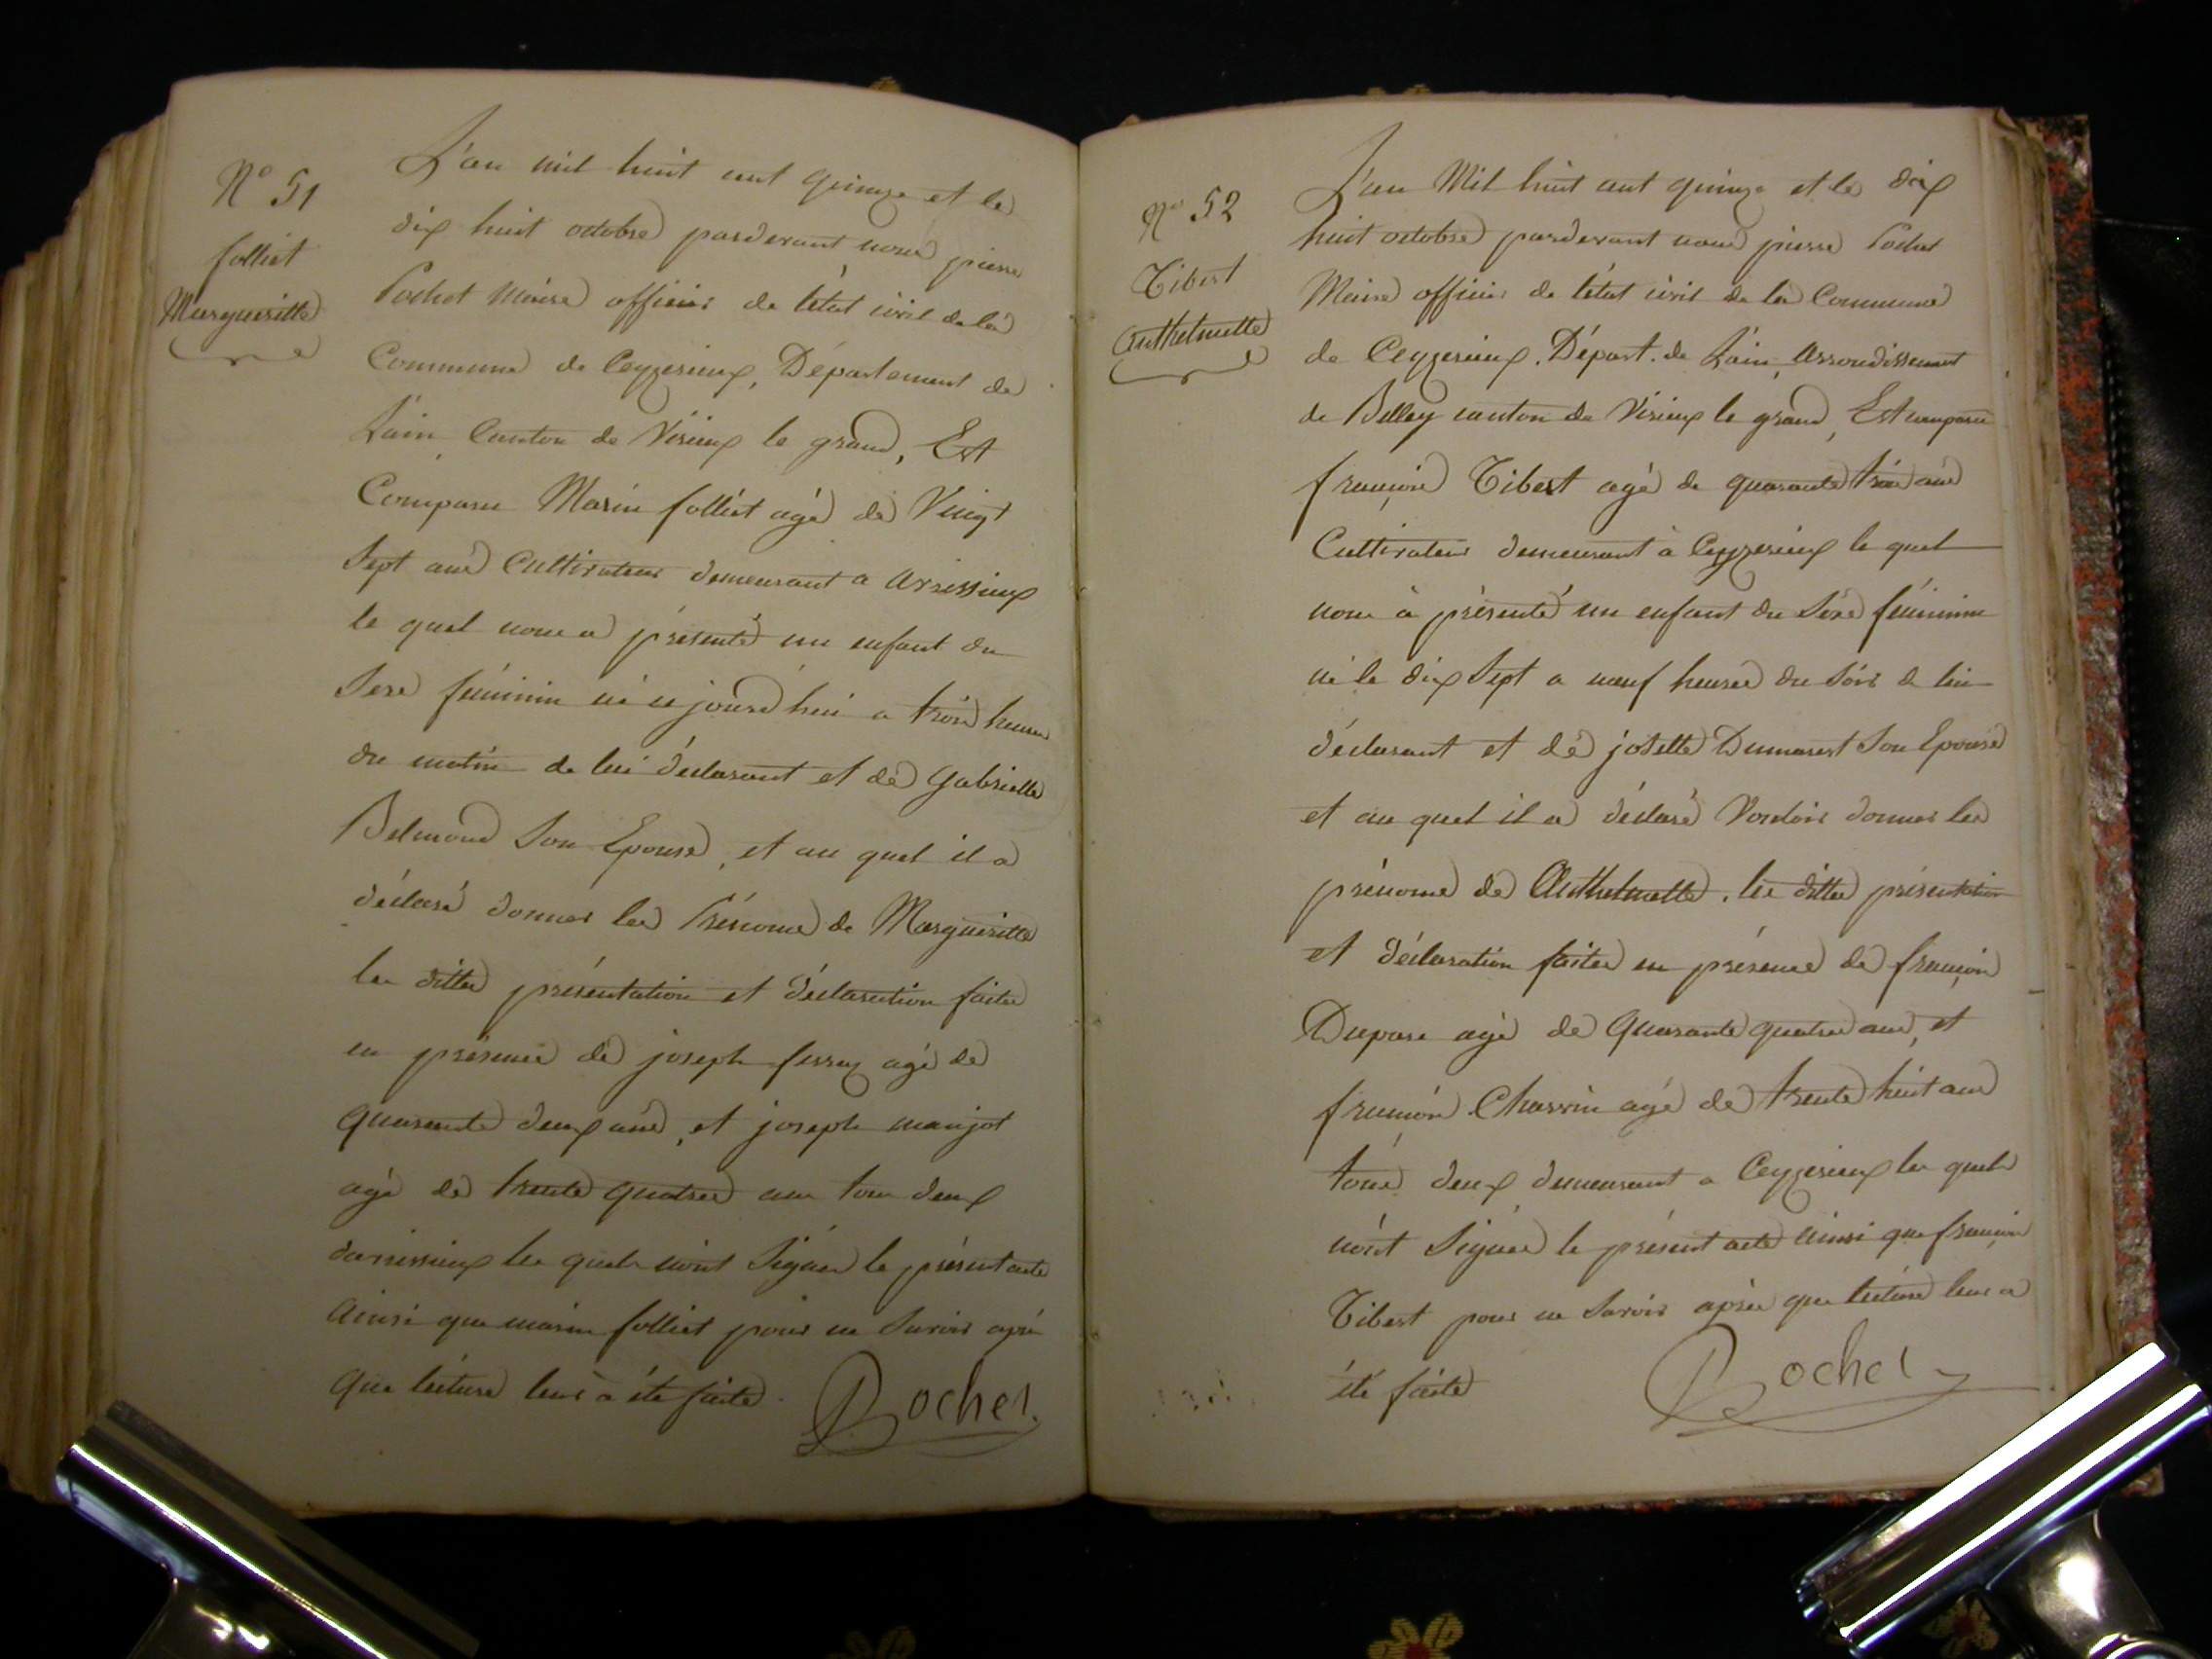 N° 51
folliet
Margueritte
L'an mil huit cent quinze et le
dix huit octobre pardevant nous pierre
Pochet Maire officier de l'état civil de la
Commune de Ceyzerieux, Département de
L'ain, Canton de Virieux le grand, Est
Comparu Marin folliet agé de Vingt
Sept ans Cultivateur demeurant a arvissieux
le quel nous a présenté un enfant du
Sexe féminin né ce jourd'hui a trois heures
du matin de lui déclarant et de Gabrielle
Belmond Son Epouse, et au quel il a
déclaré donner les Prénoms de Margueritte
les dittes présentation et déclaration faites
en présence de joseph ferraz agé de
Quarante deux ans, et joseph manjot
agé de trente quatres ans tous deux
darvissieux les quels n'ont Signés le présent acte
Ainsi que marin folliet pour ne Savoir après
Que lécture leur à été faite.
Pochet
N° 52
Tibert
Anthelmette
L'an Mil huit cent quinze et le dix
huit octobre pardevant nous pierre Pochet
Maire officier de l'état civil de la Commune
de Ceyzerieux, Départ. de L'ain, Arrondissement
de Belley canton de Virieux le grand, Est comparu
françois Tibert agé de quarante trois ans
Cultivateur demeurant à Ceyzerieux le quel
nous à présenté un enfant du Séxe féminin
né le dix Sept a neuf heures du Soir de lui
déclarant et de josette Dumarest Son Epouse
et au quel il a déclaré Vouloir donner les
prénoms de Anthelmette. les dittes présentation
et déclaration faites en présence de françois
Dupare agé de Quarante quatres ans, et
françois Charvin agé de trente huit ans
tous deux demeurant a Ceyzerieux les quels
n'ont Signés le présent acte ainsi que françois
Tibert pour ne Savoir après que lecture leur a
été faite
Pochet